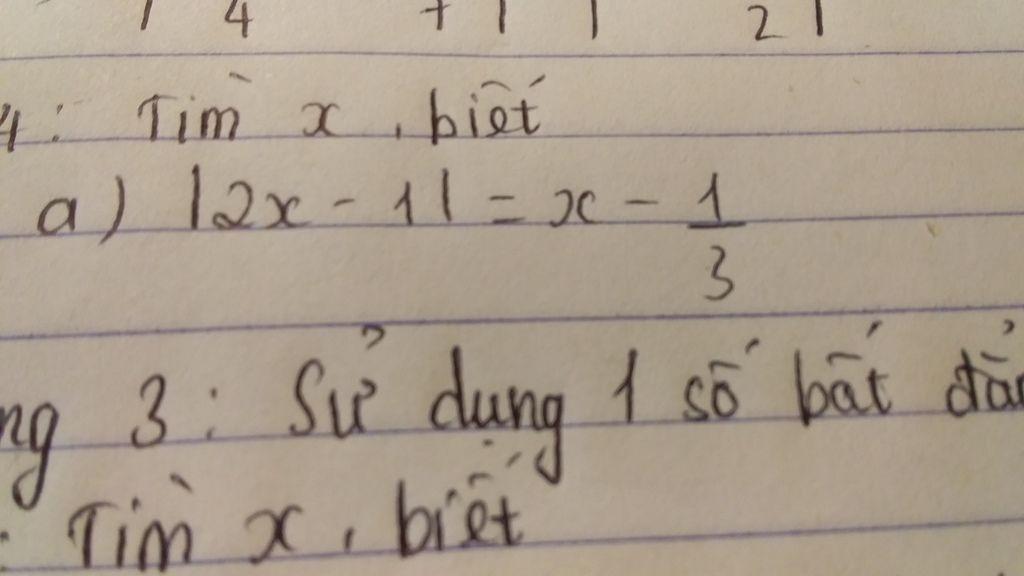 4
2
4: Tìm x, biết
a) |2x - 1| = x - 1/3
3: Sử dụng 1 số bất
Tìm x, biết